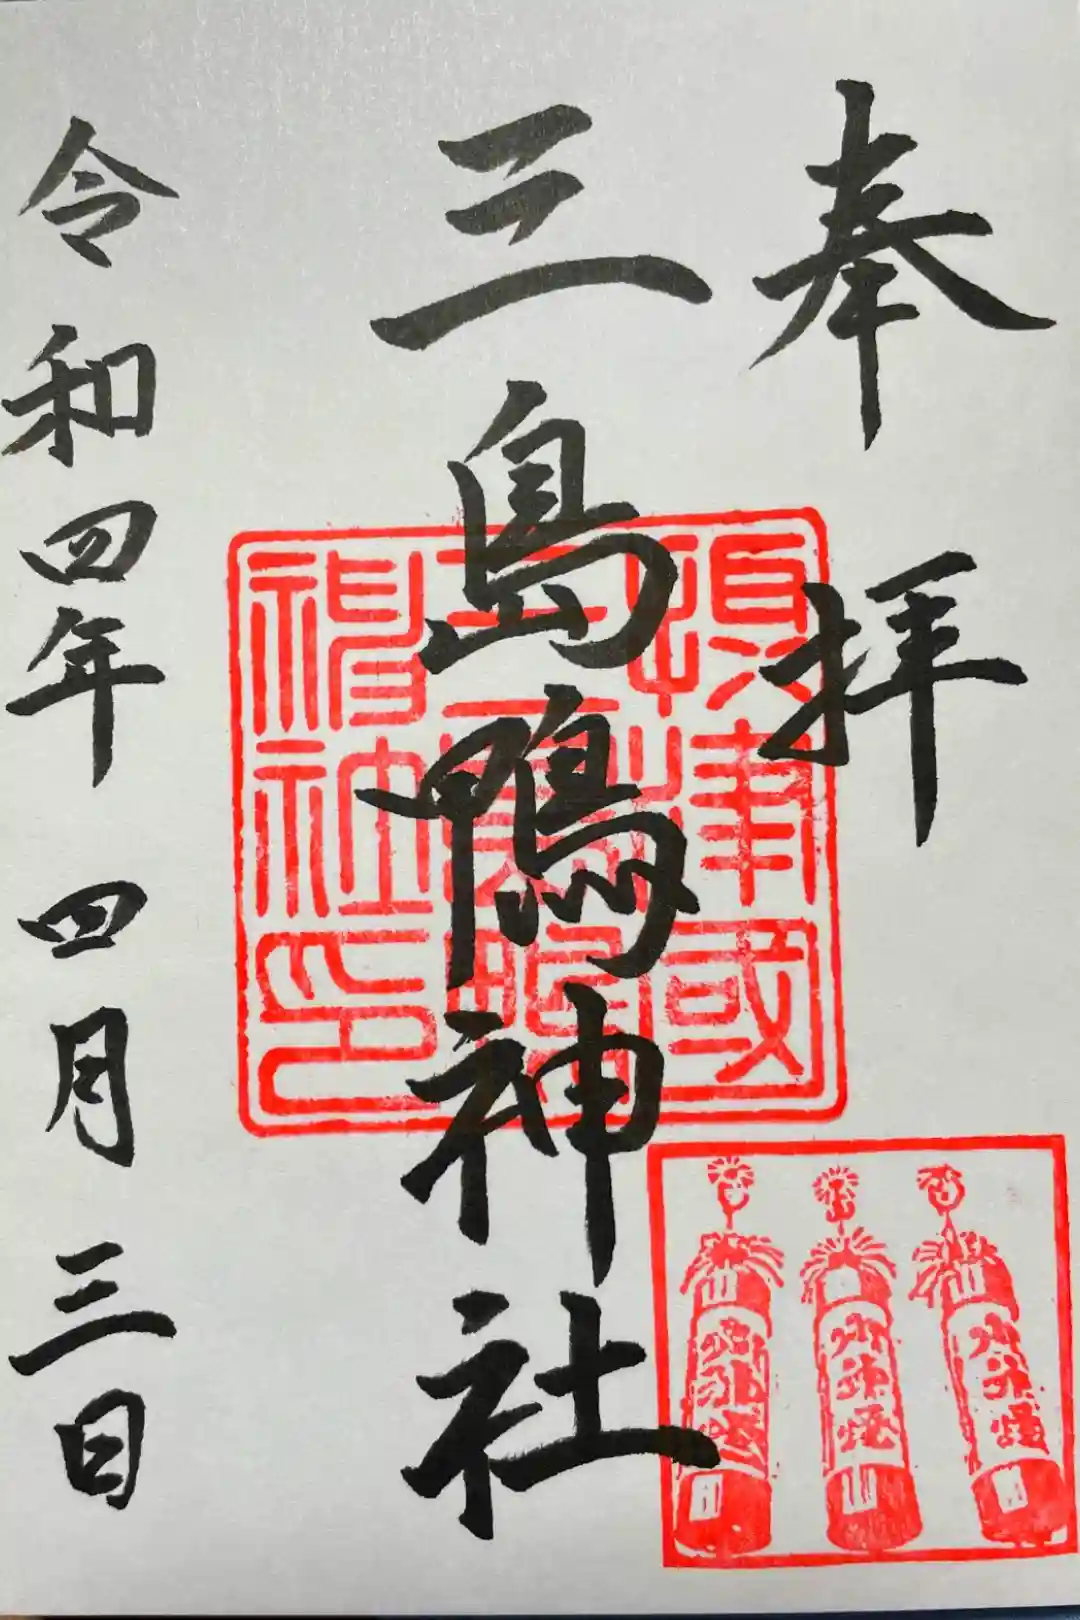 奉拝
三島鴨神社
令和四年四月三日
摂津國
三島鴨
神社印